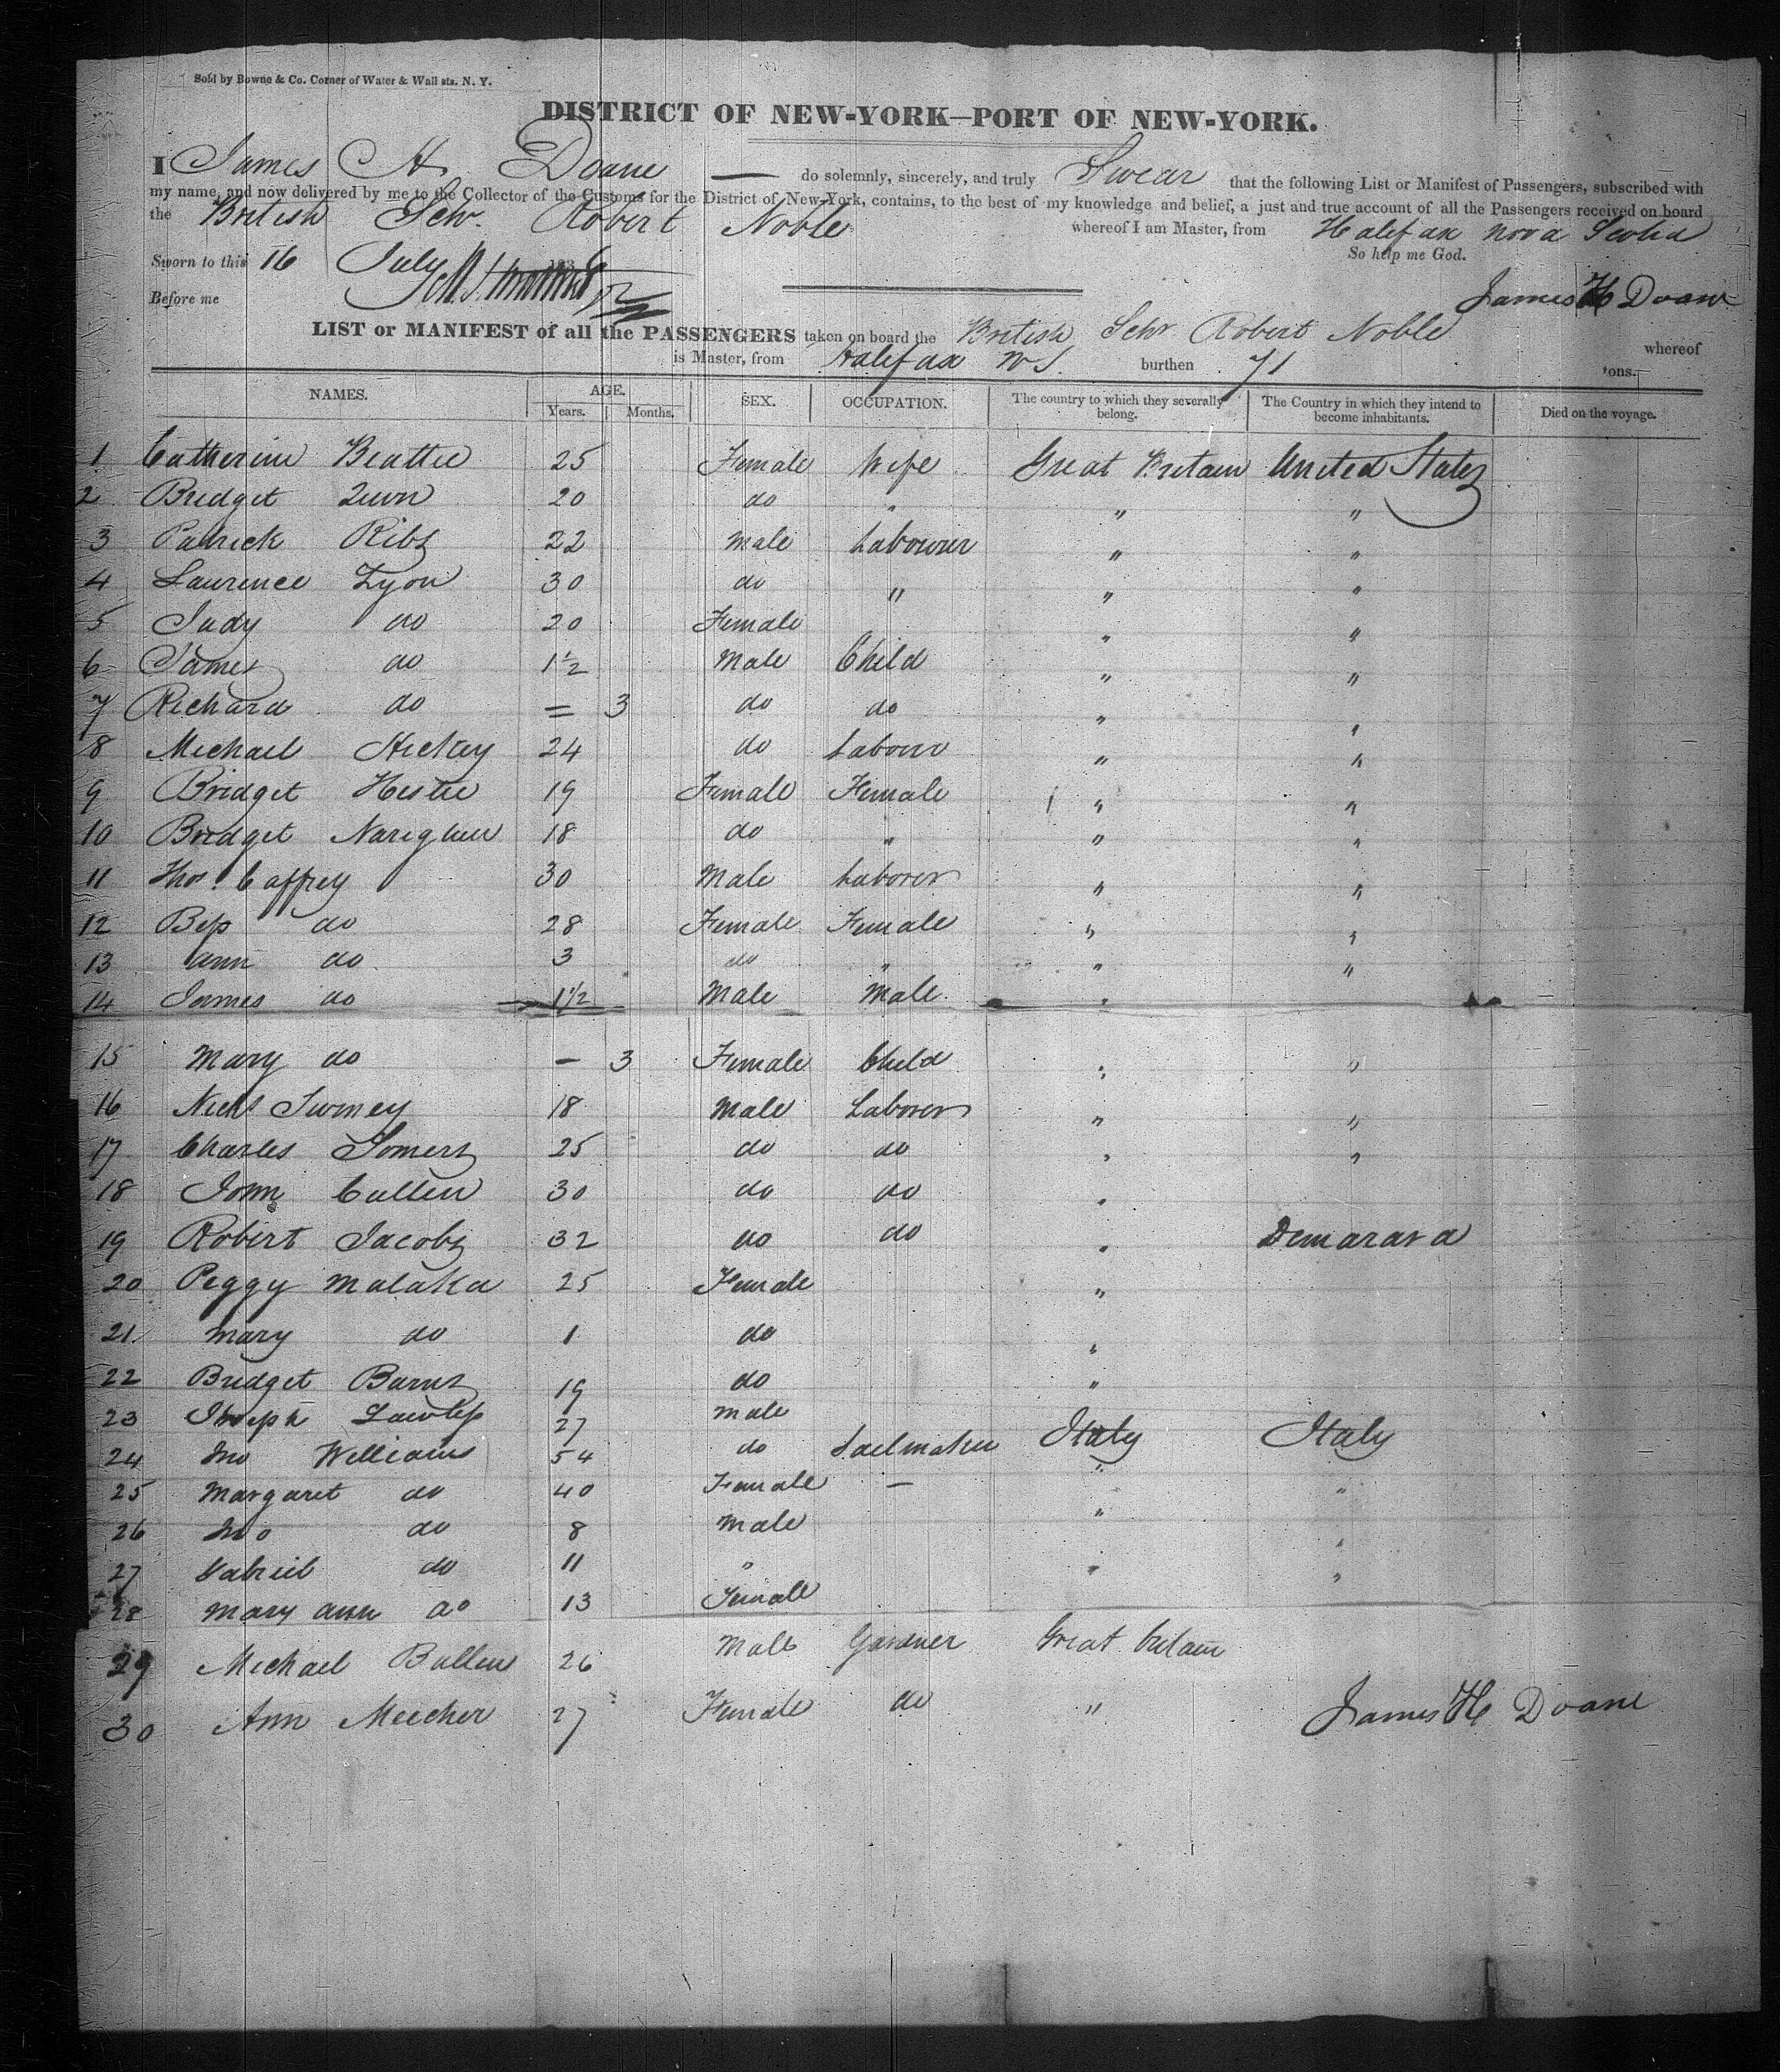 Sold by Bowne & Co. Corner of Water & Wall sts. N. Y.
DISTRICT OF NEW-YORK—PORT OF NEW-YORK.
I James H. Doane — do solemnly, sincerely, and truly Swear that the following List or Manifest of Passengers, subscribed with
my name, and now delivered by me to the Collector of the Customs for the District of New-York, contains, to the best of my knowledge and belief, a just and true account of all the Passengers received on board
the British Schr. Robert Noble whereof I am Master, from Halifax Nova Scotia
Sworn to this 16 July 1836 So help me God.
Before me James H Doane
LIST or MANIFEST of all the PASSENGERS taken on board the British Schr Robert Noble whereof
is Master, from Halifax N S. burthen 71 tons.
NAMES. AGE. Years. Months. SEX. OCCUPATION. The country to which they severally belong. The Country in which they intend to become inhabitants. Died on the voyage.
1 Catherine Beattie 25 Female Wife Great Britain United States
2 Bridget Quin 20 do " " "
3 Patrick Ribs 22 Male Labourer " "
4 Laurence Lyon 30 do " " "
5 Judy do 20 Female " "
6 James do 1½ Male Child " "
7 Richard do = 3 do do " "
8 Michael Hickey 24 do Labour " "
9 Bridget Hestie 19 Female Female " "
10 Bridget Narighen 18 do " " "
11 Thos. Caffrey 30 Male Laborer " "
12 Bess do 28 Female Female " "
13 Ann do 3 do " " "
14 James do 1½ Male Male "
15 Mary do — 3 Female Child " "
16 Nichs 18 Male Laborer " "
17 Charles Somers 25 do do " "
18 John Cullen 30 do do "
19 Robert Jacobs 32 do do " Demarara
20 Peggy Malaka 25 Female "
21 Mary do 1 do "
22 Bridget Burns 19 do "
23 Joseph 27 Male Italy Italy
24 Jno Williams 54 do Sailmaker " "
25 Margaret do 40 Female — " "
26 Jno do 8 Male " "
27 Gabriel do 11 " " "
28 Mary Ann do 13 Female
29 Michael Bullen 26 Male Gardner Great Britain
30 Ann Meecher 27 Female do "
James H Doane